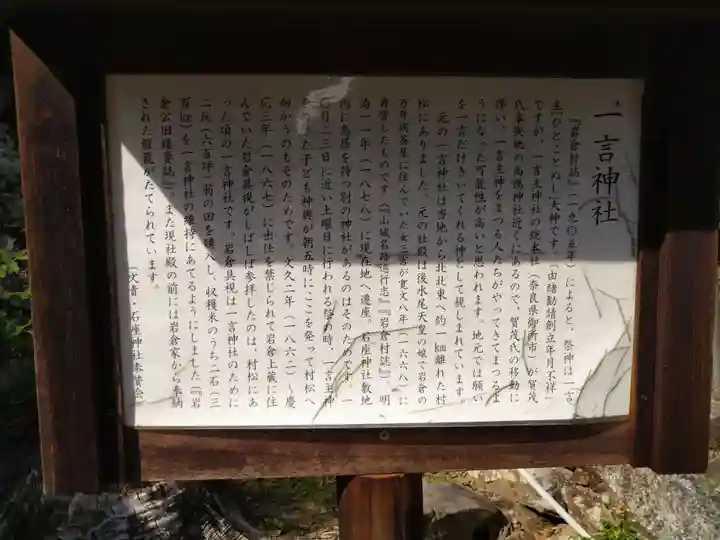 一言神社
『岩倉村誌』(一九〇五年)によると、祭神は一言
主(ひとことぬし)大神です。「由緒勧請創立年月不祥」
ですが、一言主神社の総本社(奈良県御所市)が賀茂
氏本拠地の高鴨神社近くにあるので、賀茂氏の移動に
伴い、一言主神をまつる人たちがやってきてまつるよ
うになった可能性が高いと思われます。地元では願い
を一言だけきいてくれる神として親しまれています。
元の一言神社は当地から北北東へ約一㎞離れた村
松にありました。元の社殿は後水尾天皇の娘で岩倉の
万年岡茶屋に住んでいた女三宮が寛文八年(一六六八)に
再営したものです(『山城名跡巡行志』『岩倉村誌』)。明
治一一年(一八七八)に現在地へ遷座。石座神社敷地
内に鳥居を持つ別の神社があるのはそのためです。一
〇月二三日に近い土曜日に行われる祭の時、一言主神
子ども神輿が朝五時にここを発って村松へ
向かうのもそのためです。文久二年(一八六二)~慶
応三年(一八六七)に出仕を禁じられて岩倉上蔵に住
んでいた岩倉具視がしばしば参拝したのは、村松にあ
った頃の一言神社です。岩倉具視は一言神社のために
二反(六百坪)弱の田を購入し、収穫米のうち二石(三
百㎏)を一言神社の維持にあてるようにしました(『岩
倉公旧蹟要誌』)。また現社殿の前には岩倉家から奉納
された燈籠がたてられています。
(文責・石座神社奉賛会)